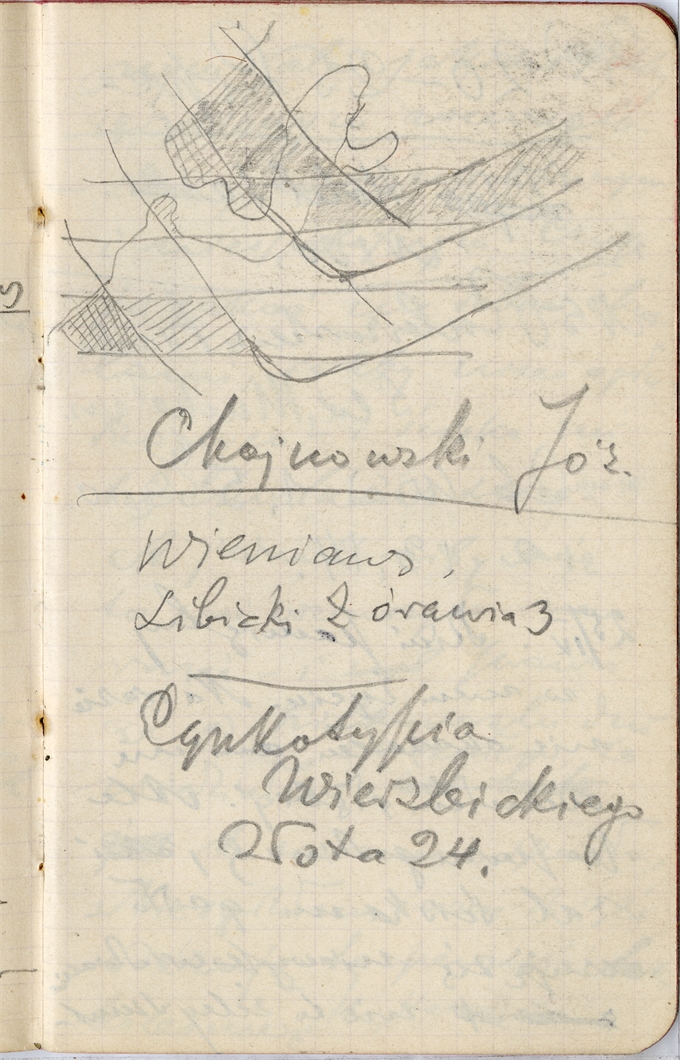 Chojnowski Józ.
Wieniaws,
Libicki Żórawia 3
Cynkotypia
Wierzbickiego
Złota 24.